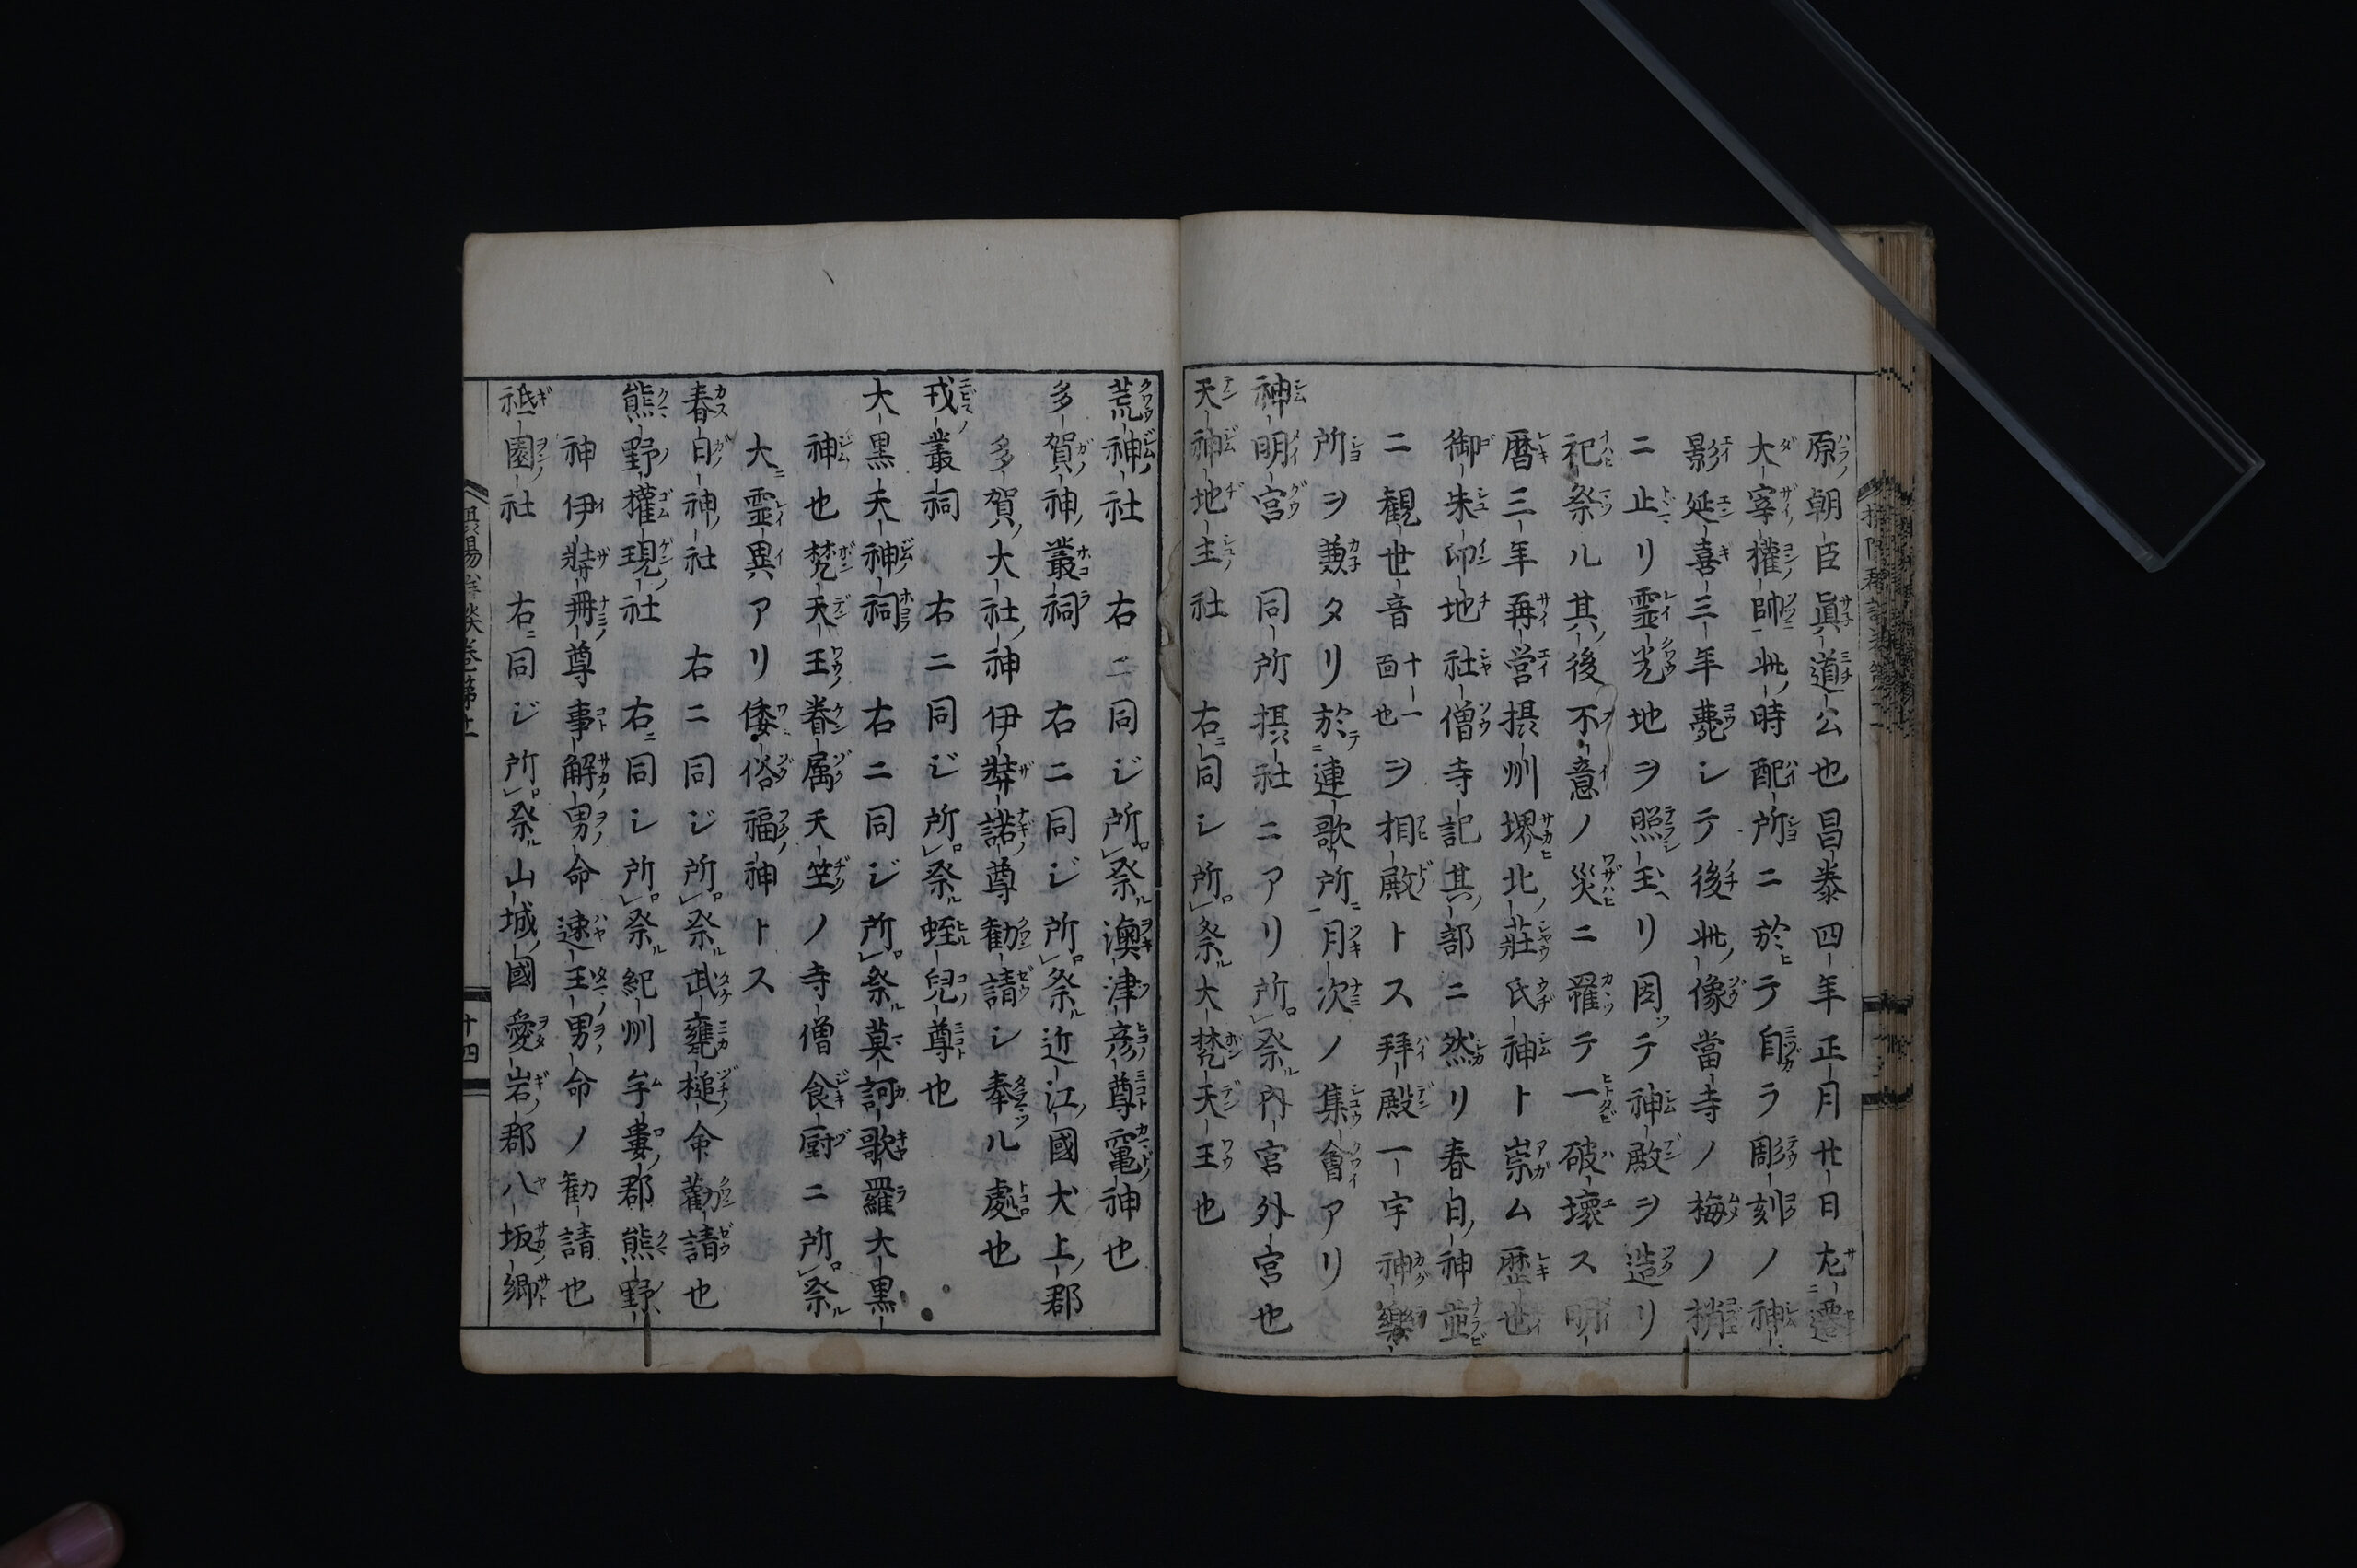 原朝臣眞道公也昌泰四年正月廿日左遷
大宰權帥此時配所ニ於テ自ラ彫刻ノ神
影延喜三年薨シテ後此像當寺ノ梅ノ梢
ニ止リ霊光地ヲ照玉リ因テ神殿ヲ造リ
祀祭ル其後不意ノ災ニ羅テ一破壞ス明
暦三年再営摂州堺北莊氏神ト崇ム歴世
御朱印地社僧寺記其部ニ然リ春日神並
ニ観世音十一面也ヲ相殿トス拜殿一宇神樂
所ヲ兼タリ於連歌所月次ノ集會アリ
神明宮 同所摂社ニアリ所祭内宮外宮也
天神地主社 右同シ所祭大梵天王也
荒神社 右ニ同ジ所祭澳津彦尊竃神也
多賀神叢祠 右ニ同ジ所祭近江國犬上郡
多賀大社神伊弉諾尊勧請シ奉ル處也
戎叢祠 右ニ同ジ所祭蛭兒尊也
大黒天神祠 右ニ同ジ所祭莫訶歌羅大黒
神也梵天王眷属天竺ノ寺僧食厨ニ所祭
大霊異アリ倭俗福神トス
春日神社 右ニ同ジ所祭武甕槌命勸請也
熊野權現社 右同シ所祭紀州牟婁郡熊野
神伊弉冊尊事解男命速玉男命ノ勧請也
祗園社 右同ジ所祭山城國愛宕郡八坂郷
十四